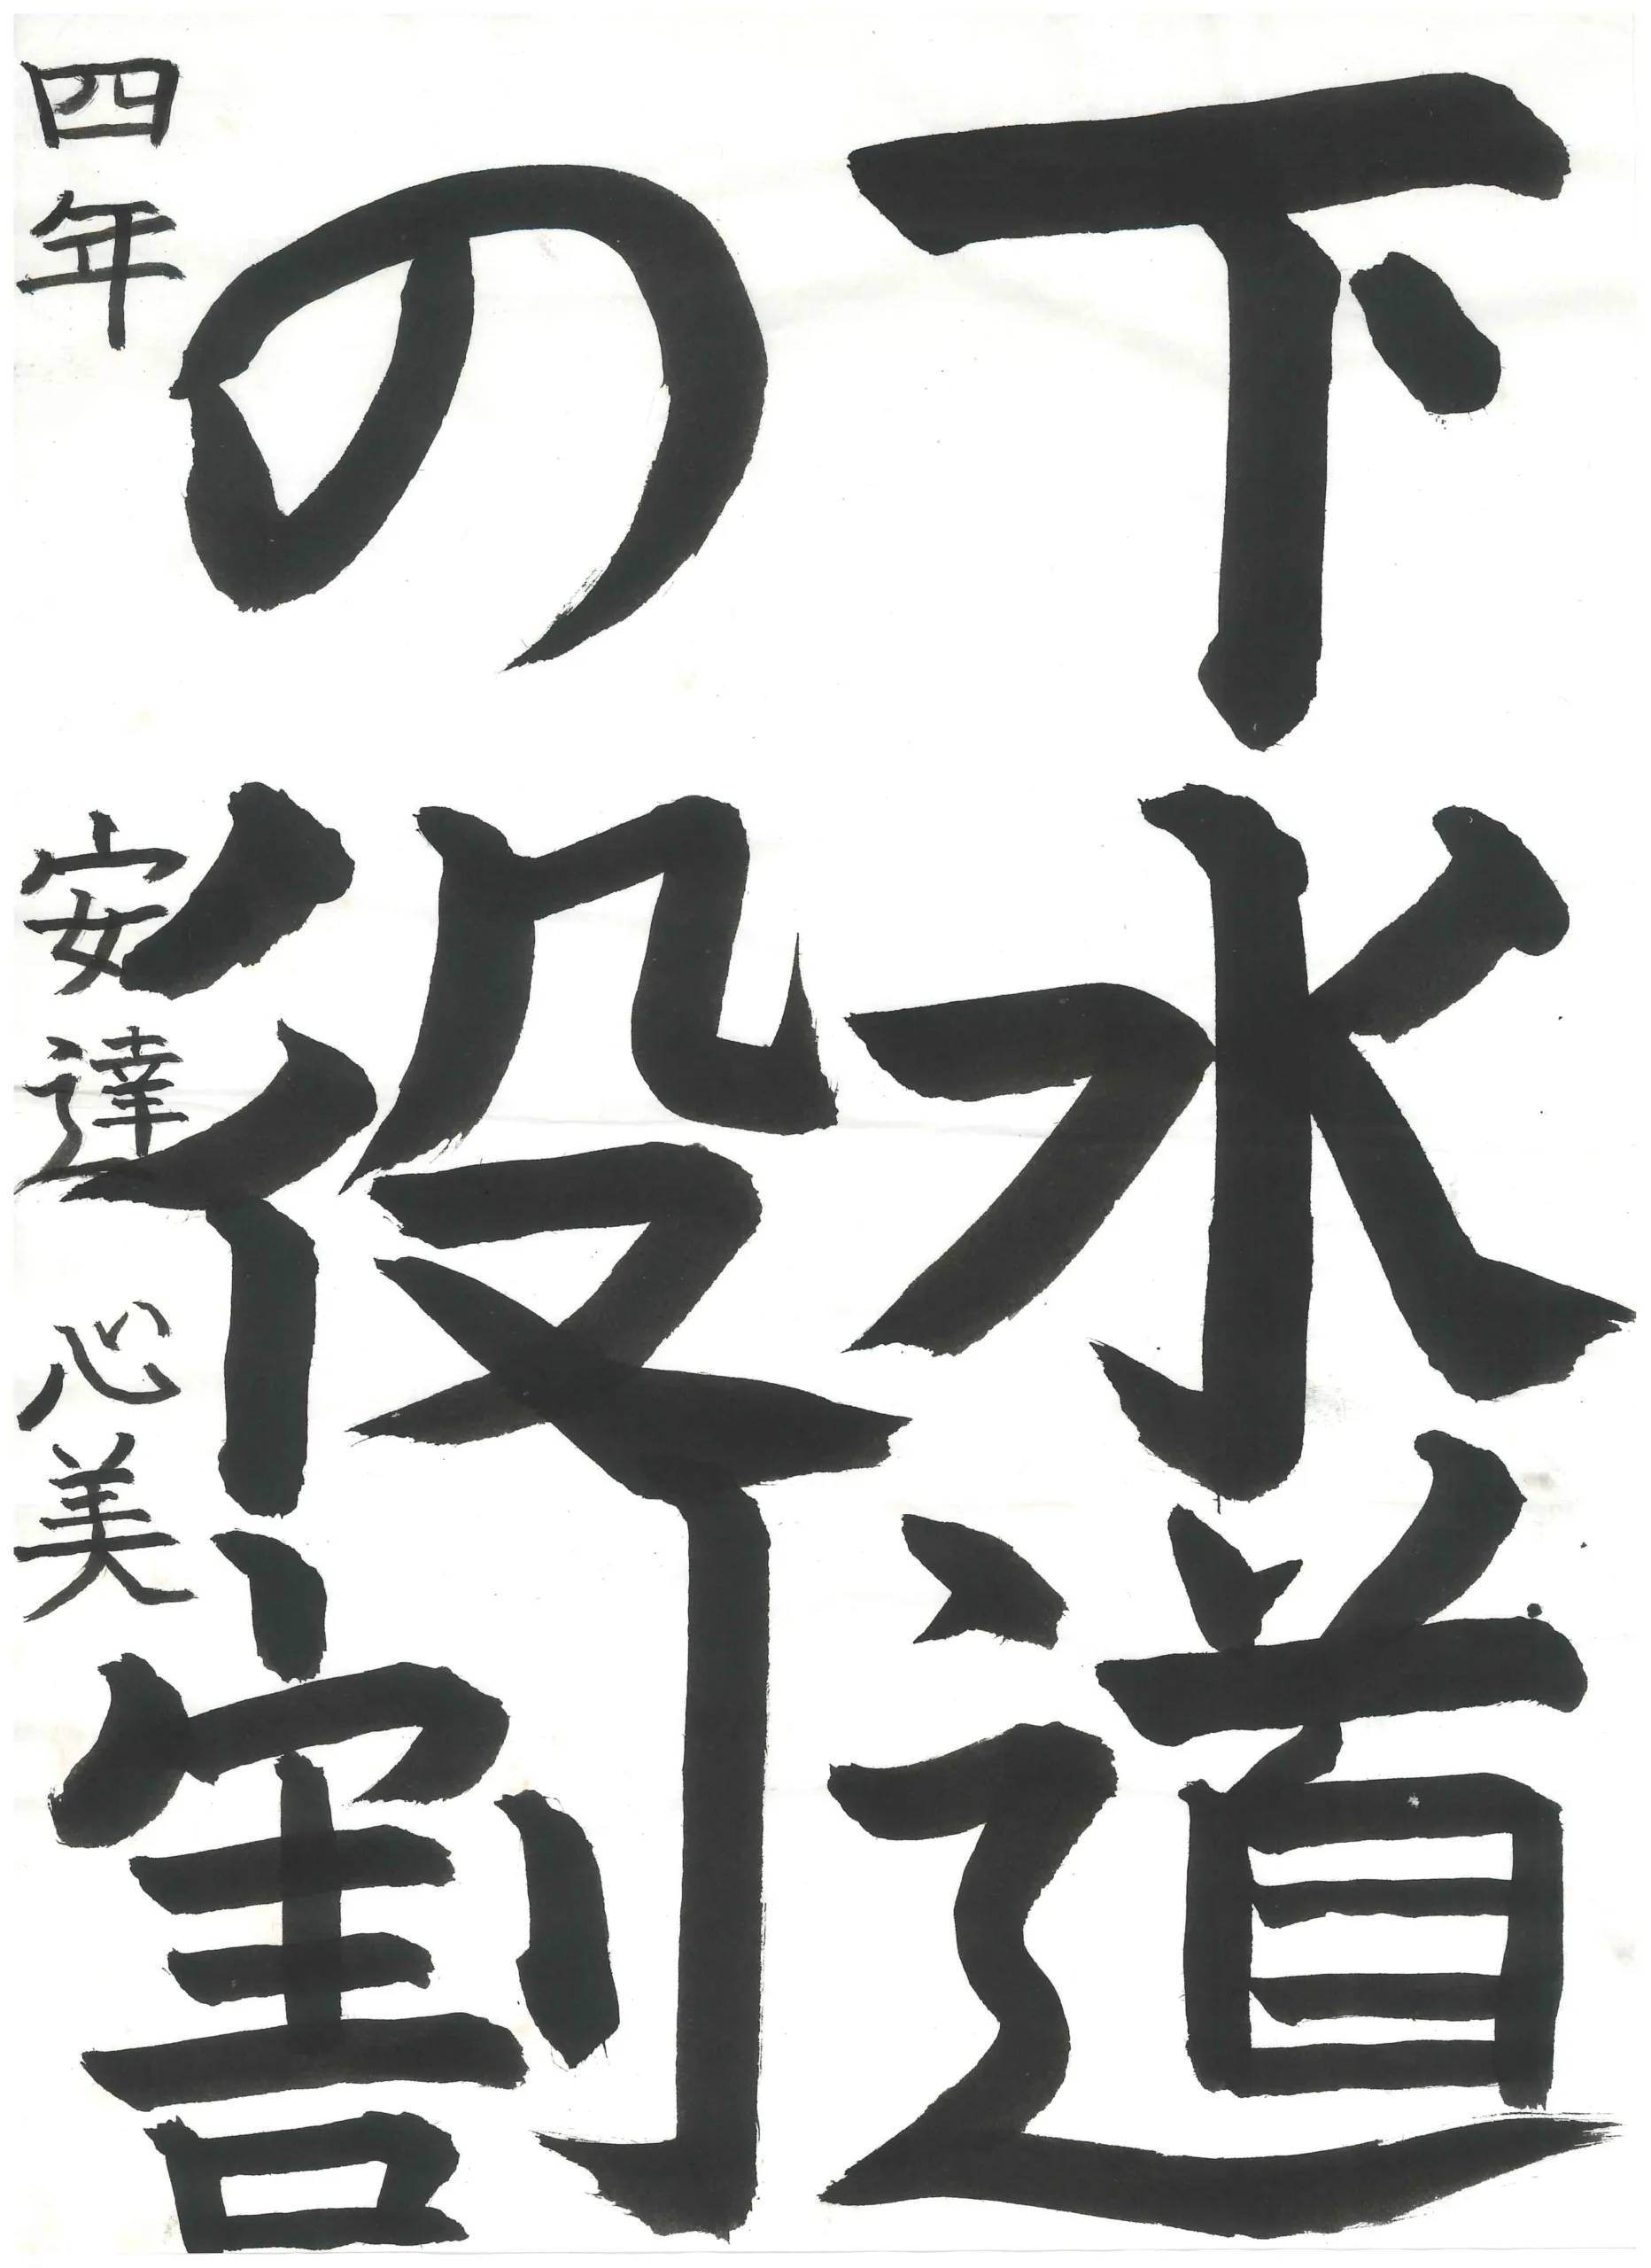 下水道
の役割
四年 安達心美